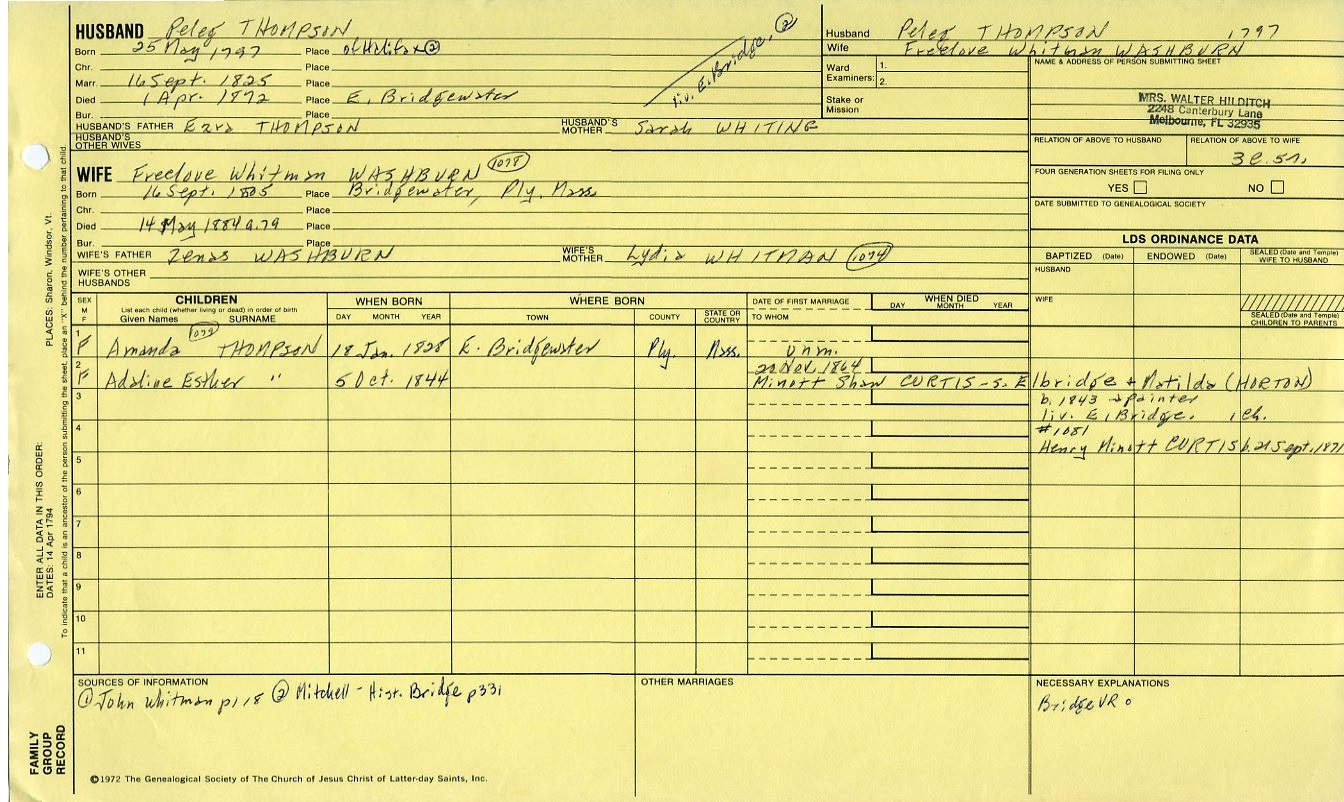 HUSBAND Peleg THOMPSON
Born 25 May 1797 Place of Halifax ②
Chr. Place
Marr. 16 Sept. 1825 Place
Died 1 Apr. 1872 Place E. Bridgewater
Bur. Place
liv. E. Bridge, ②
HUSBAND'S FATHER Ezra THOMPSON HUSBAND'S MOTHER Sarah WHITING
HUSBAND'S OTHER WIVES
Husband Peleg THOMPSON 1797
Wife Freelove Whitman WASHBURN
Ward Examiners: 1.
2.
Stake or Mission
NAME & ADDRESS OF PERSON SUBMITTING SHEET
MRS. WALTER HILDITCH
2248 Canterbury Lane
Melbourne, FL 32935
RELATION OF ABOVE TO HUSBAND RELATION OF ABOVE TO WIFE
3c. 5r.
FOUR GENERATION SHEETS FOR FILING ONLY
YES NO
DATE SUBMITTED TO GENEALOGICAL SOCIETY
WIFE Freelove Whitman WASHBURN 1078
Born 16 Sept. 1805 Place Bridgewater, Ply. Mass.
Chr. Place
Died 14 May 1884 a.79 Place
Bur. Place
WIFE'S FATHER Zenas WASHBURN WIFE'S MOTHER Lydia WHITMAN 1074
WIFE'S OTHER HUSBANDS
LDS ORDINANCE DATA
BAPTIZED (Date) ENDOWED (Date) SEALED (Date and Temple) WIFE TO HUSBAND
HUSBAND
WIFE
SEALED (Date and Temple) CHILDREN TO PARENTS
SEX M F CHILDREN WHEN BORN WHERE BORN DATE OF FIRST MARRIAGE WHEN DIED
List each child (whether living or dead) in order of birth
Given Names SURNAME DAY MONTH YEAR TOWN COUNTY STATE OR COUNTRY TO WHOM DAY MONTH YEAR
1 F Amanda 1079 THOMPSON 18 Jan. 1828 E. Bridgewater Ply. Mass. unm.
20 Nov. 1864
2 F Adaline Esther " 5 Oct. 1844 Minott Shaw CURTIS - s. Elbridge + Matilda (HORTON)
3 b. 1843 painter
liv. E. Bridge. , ch.
4 #1081
Henry Minott CURTIS b. 21 Sept. 1871
5
6
7
8
9
10
11
SOURCES OF INFORMATION
① John Whitman p118 ② Mitchell - Hist. Bridge p331
OTHER MARRIAGES
NECESSARY EXPLANATIONS
Bridge VR o
©1972 The Genealogical Society of The Church of Jesus Christ of Latter-day Saints, Inc.
FAMILY GROUP RECORD
ENTER ALL DATA IN THIS ORDER:
DATES: 14 Apr 1794
PLACES: Sharon, Windsor, Vt.
To indicate that a child is an ancestor of the person submitting the sheet, place an "X" behind the number pertaining to that child.